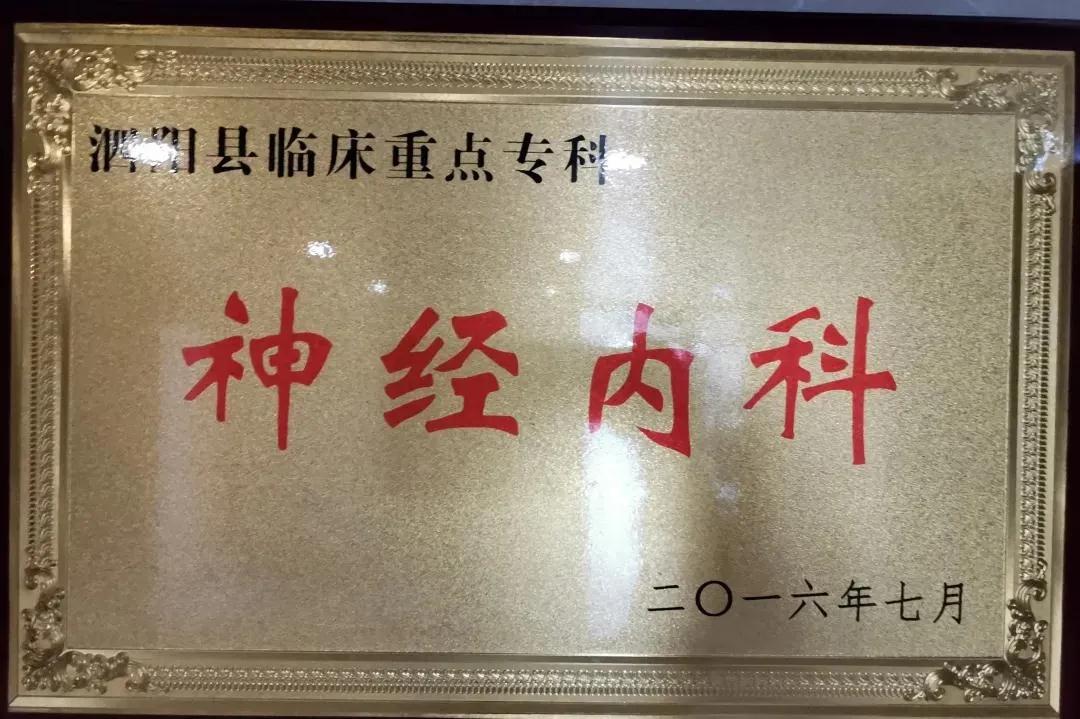 泗阳县临床重点专科
神经内科
二〇一六年七月